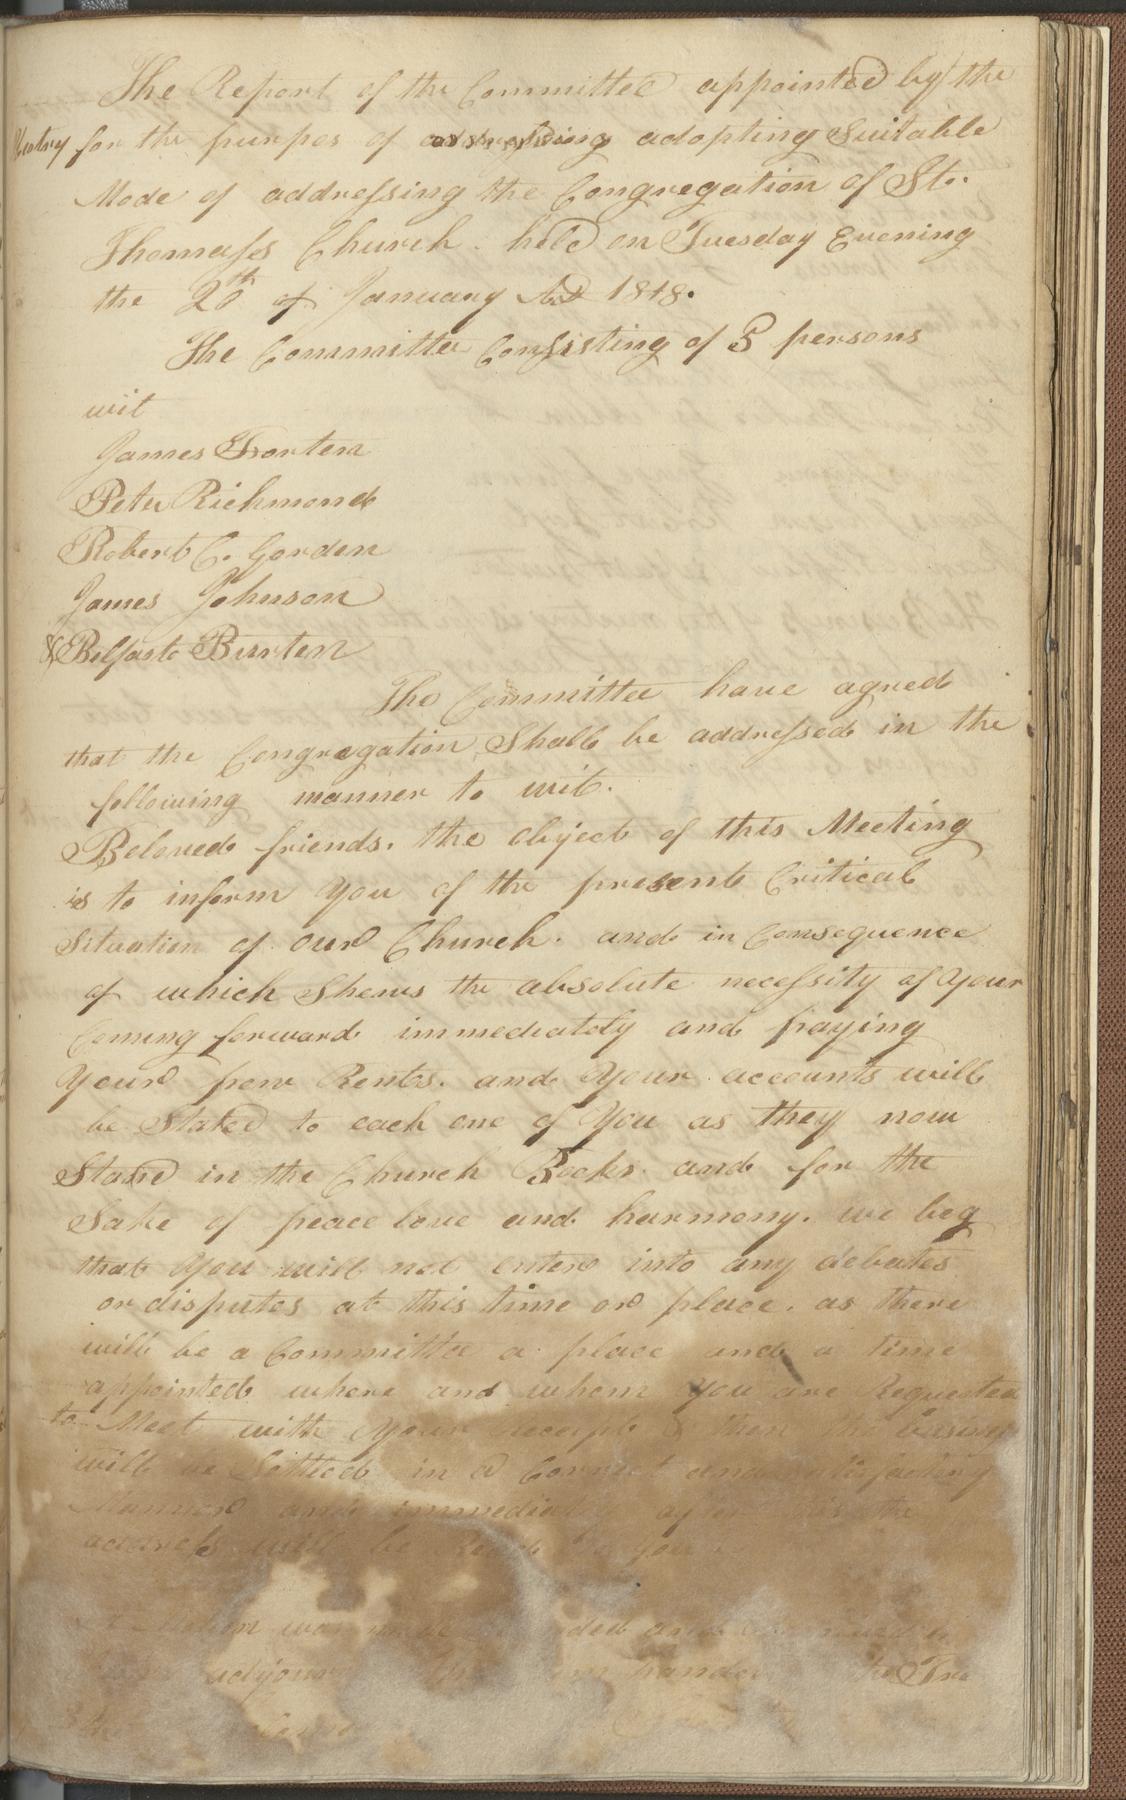 The Report of the Committee appointed by the
Vestry for the purpes of adopting Suitable
Mode of addressing the Congregation of St.
Thomass Church. held on Tuesday Evening
the 20th of January AD 1818.
The Committee Consisting of 5 persons
wit
James Forten
Peter Richmond
Robert C. Gorden
James Johnson
& Belfast Burten
The Committee have agred
that the Congregation Shall be addressed in the
following manner to wit.
Beloved friends. the object of this Meeting
is to inform You of the present Critical
Situation of our Church. and in Consequence
of which Shews the absolute necessity of Your
Coming forward immediately and paying
Your pew Rents. and Your accounts will
be Stated to each one of You as they now
Stand in the Church Books. and for the
Sake of peace love and harmony. we beg
that You will not enter into any debates
or disputes at this time or place. as there
will be a Committee a place and a time
appointed where and whom You are Requested
to Meet with Your receipts & then the
will be Settled in a Correct and
Manner and immediatly after this the
address will be Read to you
Motion was made and
adjourn handed the Tre